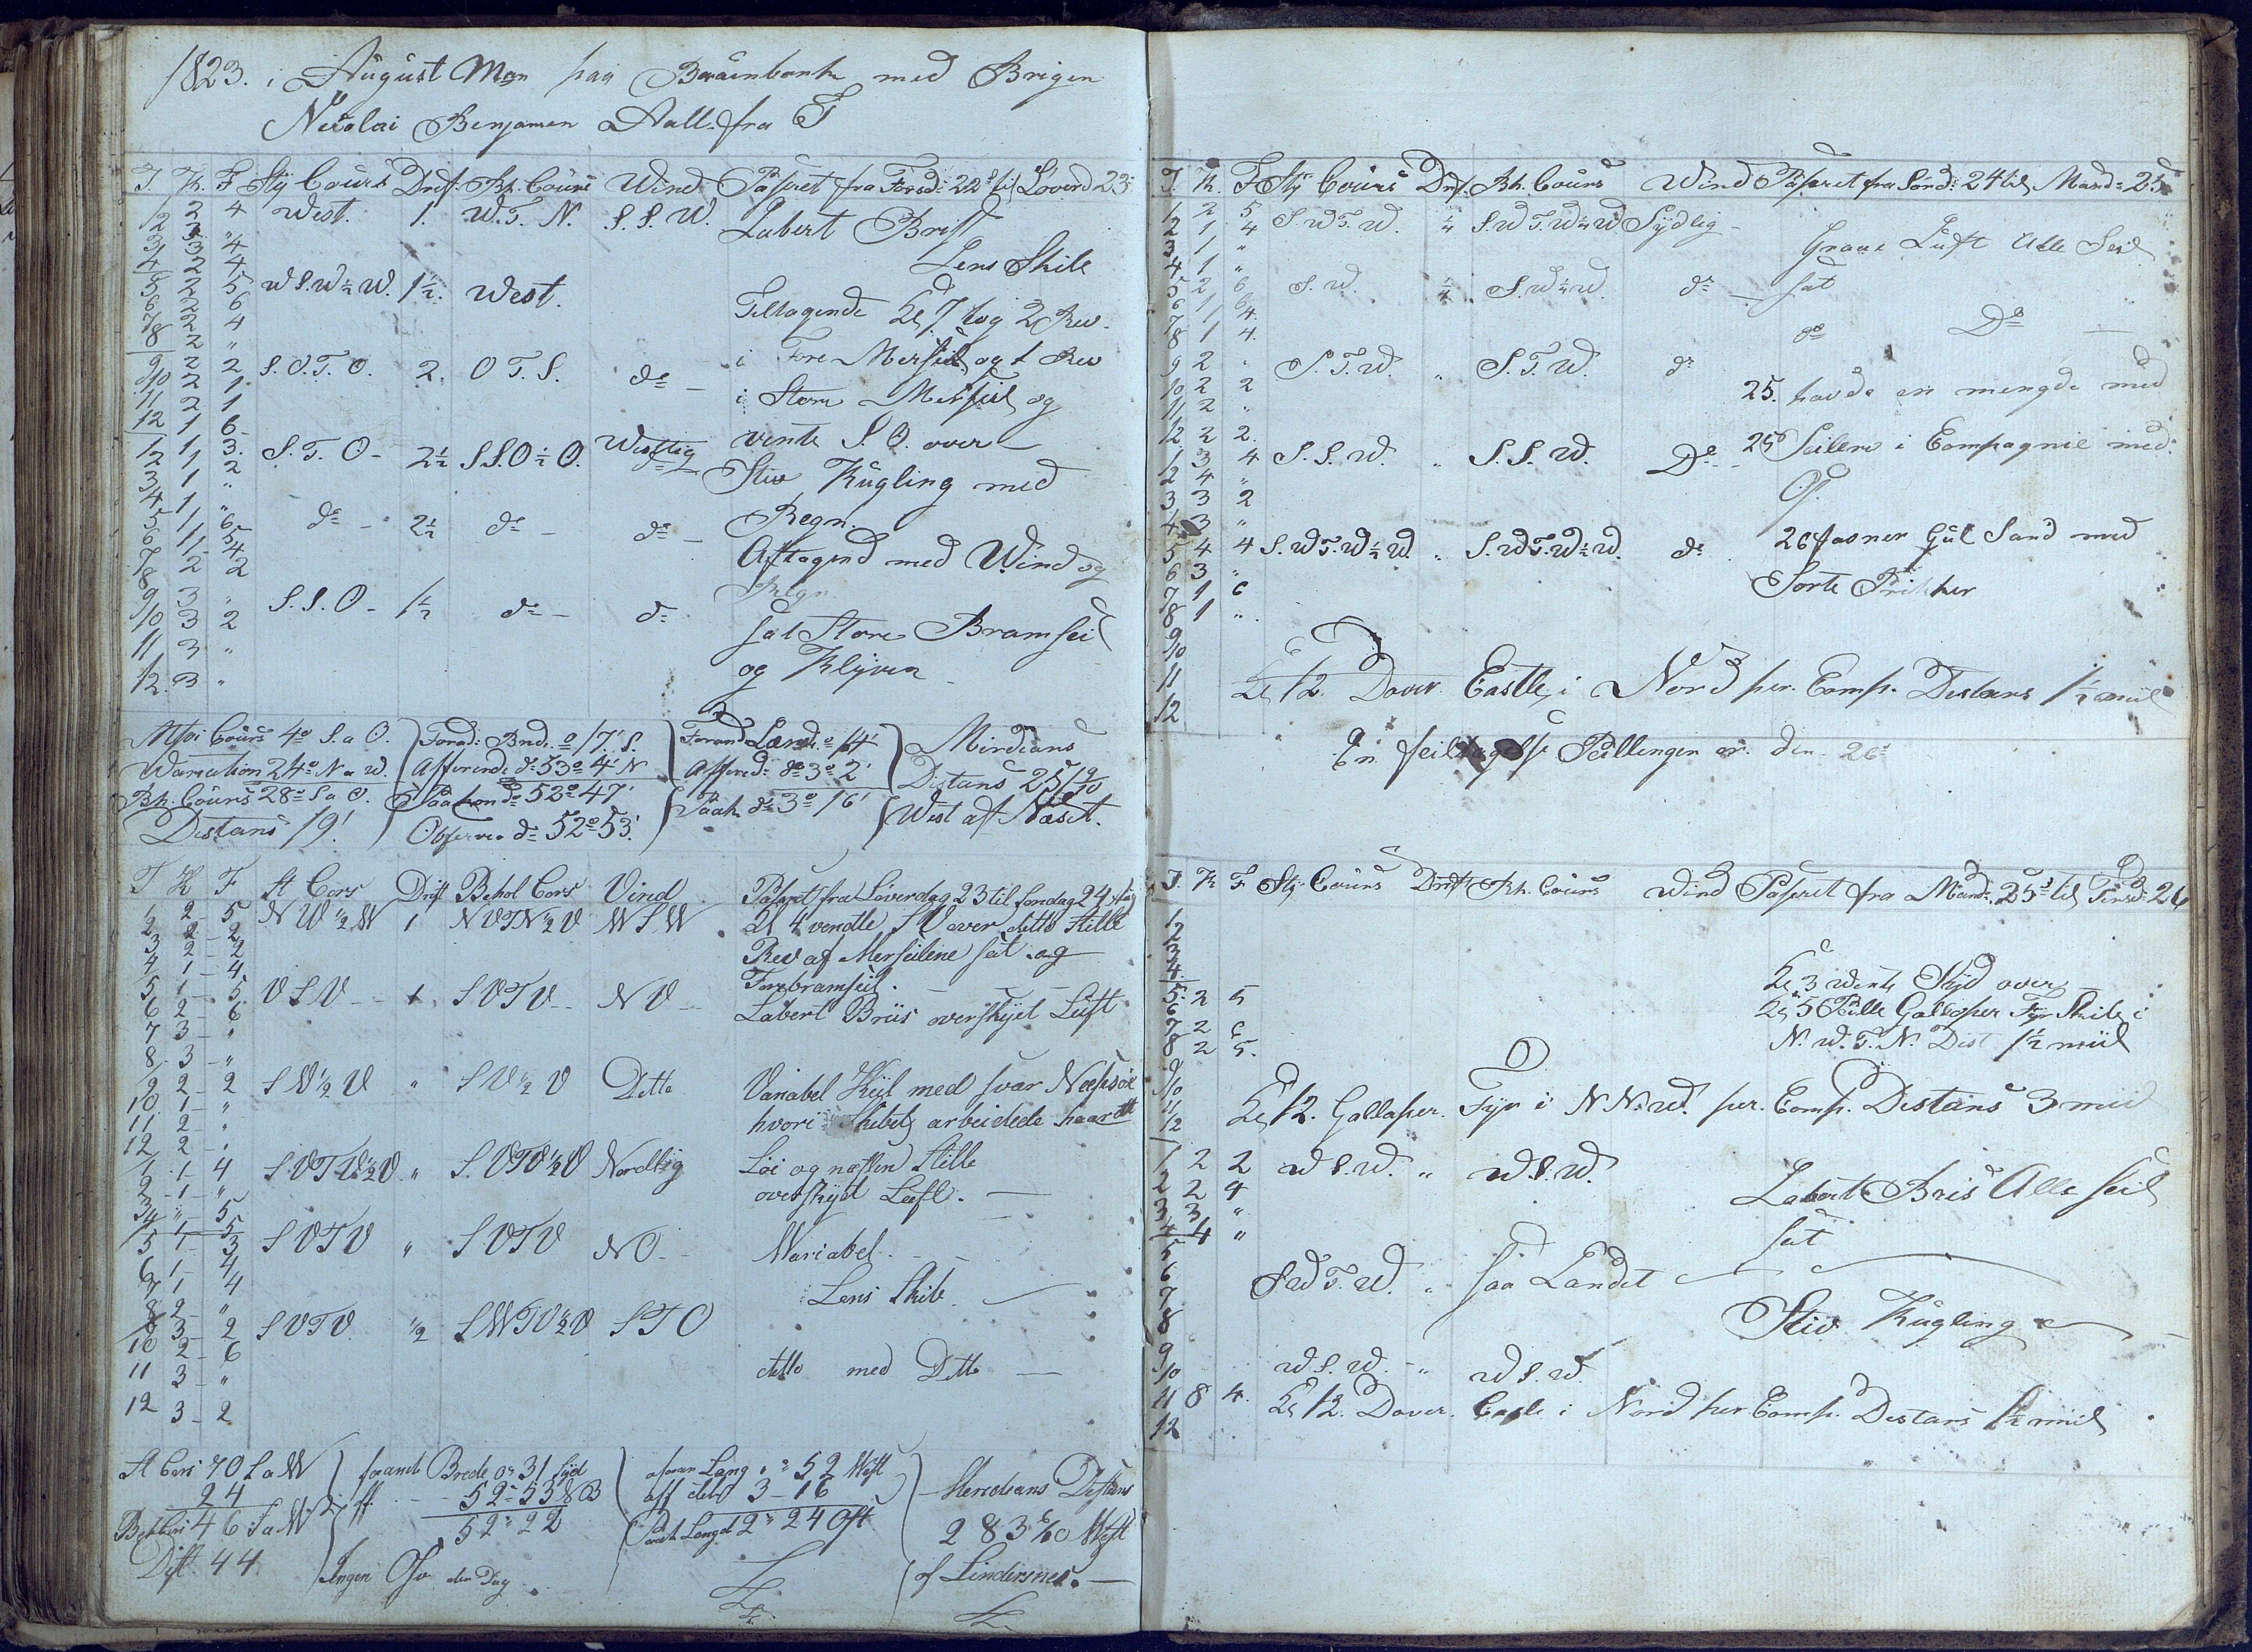 1823. i August Mon paa Braainbank med Brigen
Nicolai Benjamen Aall fra
T. K. F Sty Cours Drift. Bh. Cours Wind Pasert fra Fored: 22d til Løverd 23
1 2 4 West. 1. W. T. N. S. S. W. Labert Bris
2 3 "
3 3 4 Lens Skib
4 2 4
5 2 5 W S. W ½ W. 1½. West.
6 2 6 Teltagende Kl 7 tog 2 Rev
7 2 4
8 2 " i Fore Merseil og 1 Rev
9 2 2 S. O. T. O. 2. O T. S. do
10 2 1 i Store Merseil og
11 2 1
12 1 6 vente S. O. over
1 1 3. S. T. O - 2½ S. S. O ½ O. Westlig
2 1 2 Stiv Kugling med
3 1 "
4 1 " Regn.
5 1 6 do - 2½ do - do -
6 1 5 Aftagend med Wind og
7 1 4
8 2 2 Regn
9 3 " S. S. O - 1½ do - do
10 3 2 sat Store Bramseil
11 3 "
12. 3 " og Klyver
Cours 4o S. a O. 17' S. 14' Mirdians
Wariation 24o N a W. Afferende do 53o 4' N Afferd: do 3o 2' Distans 251 9/10
Bh. Cours 28o S a O. Paak do 52o 47' Paak do 3o 16' West af Næset.
Distans 19' Observe do 52o 53'.
T K F St Cors Drift Behol Cors Vind Pasert fra Löverdag 23 til Søndag 24 Aug
1 2 5 N W ½ W 1 N V T N ½ V W S W Kl 4 vendte S V over ditto Stille
2 2 2
3 2 2 Rev af Merseilene sat og
4 1 4
5 1 5 V S V - 1 S V T V - N V Forebramseil.
6 2 6 Labert Briis overskyet Luft
7 3 "
8 3 "
9 2 2 S V ½ V " S V ½ V Ditto Variabel Kuyl med svar Næssøe
10 1 "
11 2 " hvori Skibet arbeidede haardt
12 2 "
1 1 4 S. V T V ½ V " S. V T V ½ V Nordlig Löi og næsten Stille
2 1 " overskyet Luft.
3 " 5
4 1 5
5 1 3 S V T V " S V T V N O - Wariabel
6 1 4
7 1 4 Lens Skib
8 2 "
9 3 2 S V T V. ½ S W T V ½ V S T O
10 2 6
11 3 " ditto med Ditto
12 3 2
St Cors 70 S a W Brede 0" 31 Syd Lang " 52 West Meredians Distans
24 52" 53 aff ditto 3 - 16 283 6/10 West
46 S a W 52" 22 Længd 2" 24 Ost af Lindersnes.
Dist 44 Ingen Obs. den Dag
T. K. F Sty Cours Drf. Bh. Cours Wind Pasert fra Sönd: 24 til Mand: 25
1 2 5 S. W T. W. ¼ S. W T. W ¼ W Sydlig
2 1 4 Graae Luft Alle Seil
3 1 "
4 1 "
5 2 6 S. W. ¼ S. W ¼ W. do sat
6 1 6
7 1 4. do Do
8 1 4.
9 2 " S. T. W. " S. T. W. do
10 2 2 25. havde en mengde med
11 2 "
12 2 2.
1 3 4 S. S. W. " S. S. W. Do - Seilere i Compagnie med
2 4 "
3 3 2 Os.
4 3 "
5 4 4 S. W T. W ½ W " S. W T. W ½ W. do 26 favner Gul Sand med
6 3 "
7 1 6 Sorte Prikker
8 1 "
9
10
11 Kl 12. Dover Castle, i Nord per. Comp. Distans 1½ miil
12
En feiltagelse Peillingen er den 26d
T. K F. Sty. Cours Drift Bh. Cours Wind Pasert fra Mand: 25d til Tirsd: 26
1
2
3 Kl 3 vente Syd over
4
5. 2 5 Kl 5 Pille Gallaper Fyr Skib i
6
7 2 6 N. W. T. N. Dist 1½ miil
8 2 5.
9
10
11 Kl 12. Gallaper. Fyr i N N. W. per. Comp. Distans 3 miil
12
1 2 2 W S. W. " W. S. W.
2 2 4 Labert Bris Alle Seil
3 3 "
4 4 " sat
5
6 S W T. W. " saa Landet
7
8 Stiv Kugling
9
10 W S. W. - " W S. W.
11 8 4. Kl 12. Dover. Casle i Nord per Comp. Distans 1½ miil
12